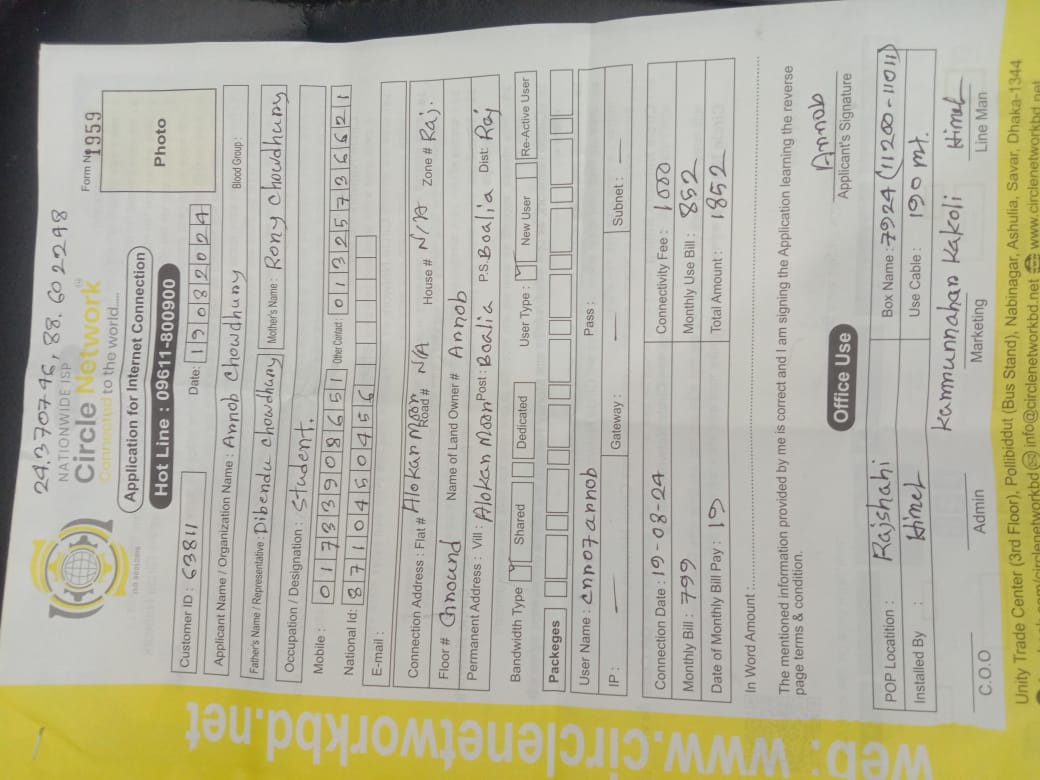 24.370746, 88.602248
NATIONWIDE ISP
Circle Network
Connected to the world.....
Form No
1959
Application for Internet Connection
Hot Line : 09611-800900
Photo
Customer ID : 63811 Date: 19082024
Applicant Name / Organization Name : Annob Chowdhury Blood Group :
Father's Name / Representative : Dibendu Chowdhury Mother's Name : Rony Chowdhury
Occupation / Designation : Student.
Mobile : 01733908651 Other Contact : 01325736621
National Id: 8710450456
E-mail :
Connection Address : Flat # Alokar Moon Road # N/A House # N/A Zone # Raj.
Floor # Ground Name of Land Owner # Annob
Permanent Address : Vill : Alokar Moon Post : Boalia P.S. Boalia Dist: Raj
Bandwidth Type Shared Dedicated User Type : New User Re-Active User
Packeges
User Name : cnr07annob Pass :
IP : — Gateway : — Subnet : —
Connection Date : 19-08-24 Connectivity Fee : 1000
Monthly Bill : 799 Monthly Use Bill : 852
Date of Monthly Bill Pay : 19 Total Amount : 1852
In Word Amount :
The mentioned information provided by me is correct and I am signing the Application learning the reverse
page terms & condition.
Annob
Applicant's Signature
Office Use
POP Locatition : Rajshahi Box Name : 7924 (11200-11011)
Installed By : Himel Use Cable : 190 mt.
Kamrunnahar Kakoli Himel
C.O.O Admin Marketing Line Man
Unity Trade Center (3rd Floor), Pollibiddut (Bus Stand), Nabinagar, Ashulia, Savar, Dhaka-1344
info@circlenetworkbd.net www.circlenetworkbd.net
web: www.circlenetworkbd.net